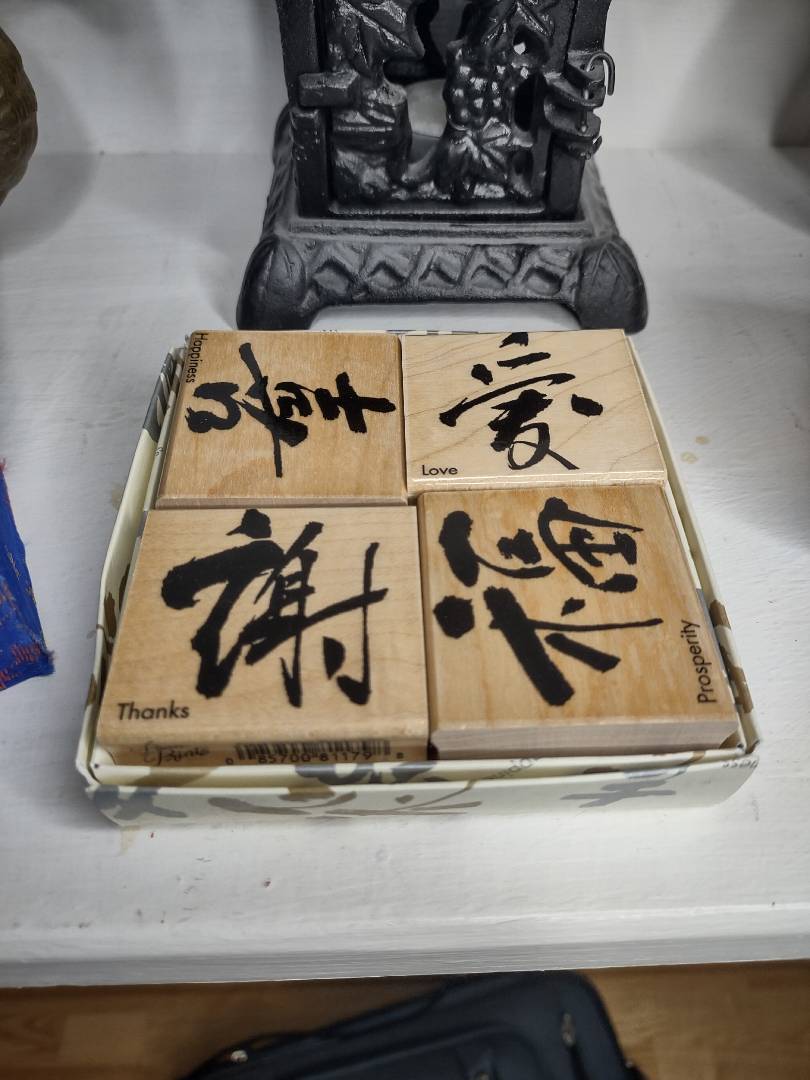 喜
Happiness
愛
Love
謝
Thanks
福
Prosperity
0 85700 81179 8